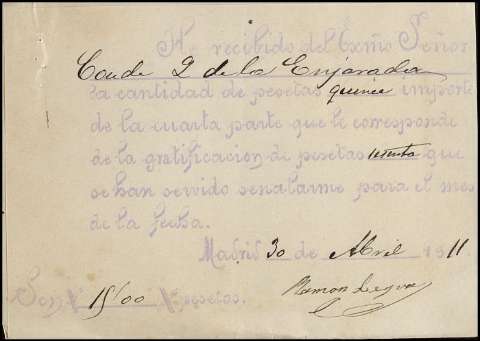 He recibido del Exmo Señor
Conde de los Enjarada
la cantidad de pesetas quince importe
de la cuarta parte que le corresponde
de la gratificacion de pesetas sesenta que
se han servido señalarme para el mes
de la fecha.
Madrid 30 de Abril 1911.
Son 15'00 pesetas.
Ramon Leyva